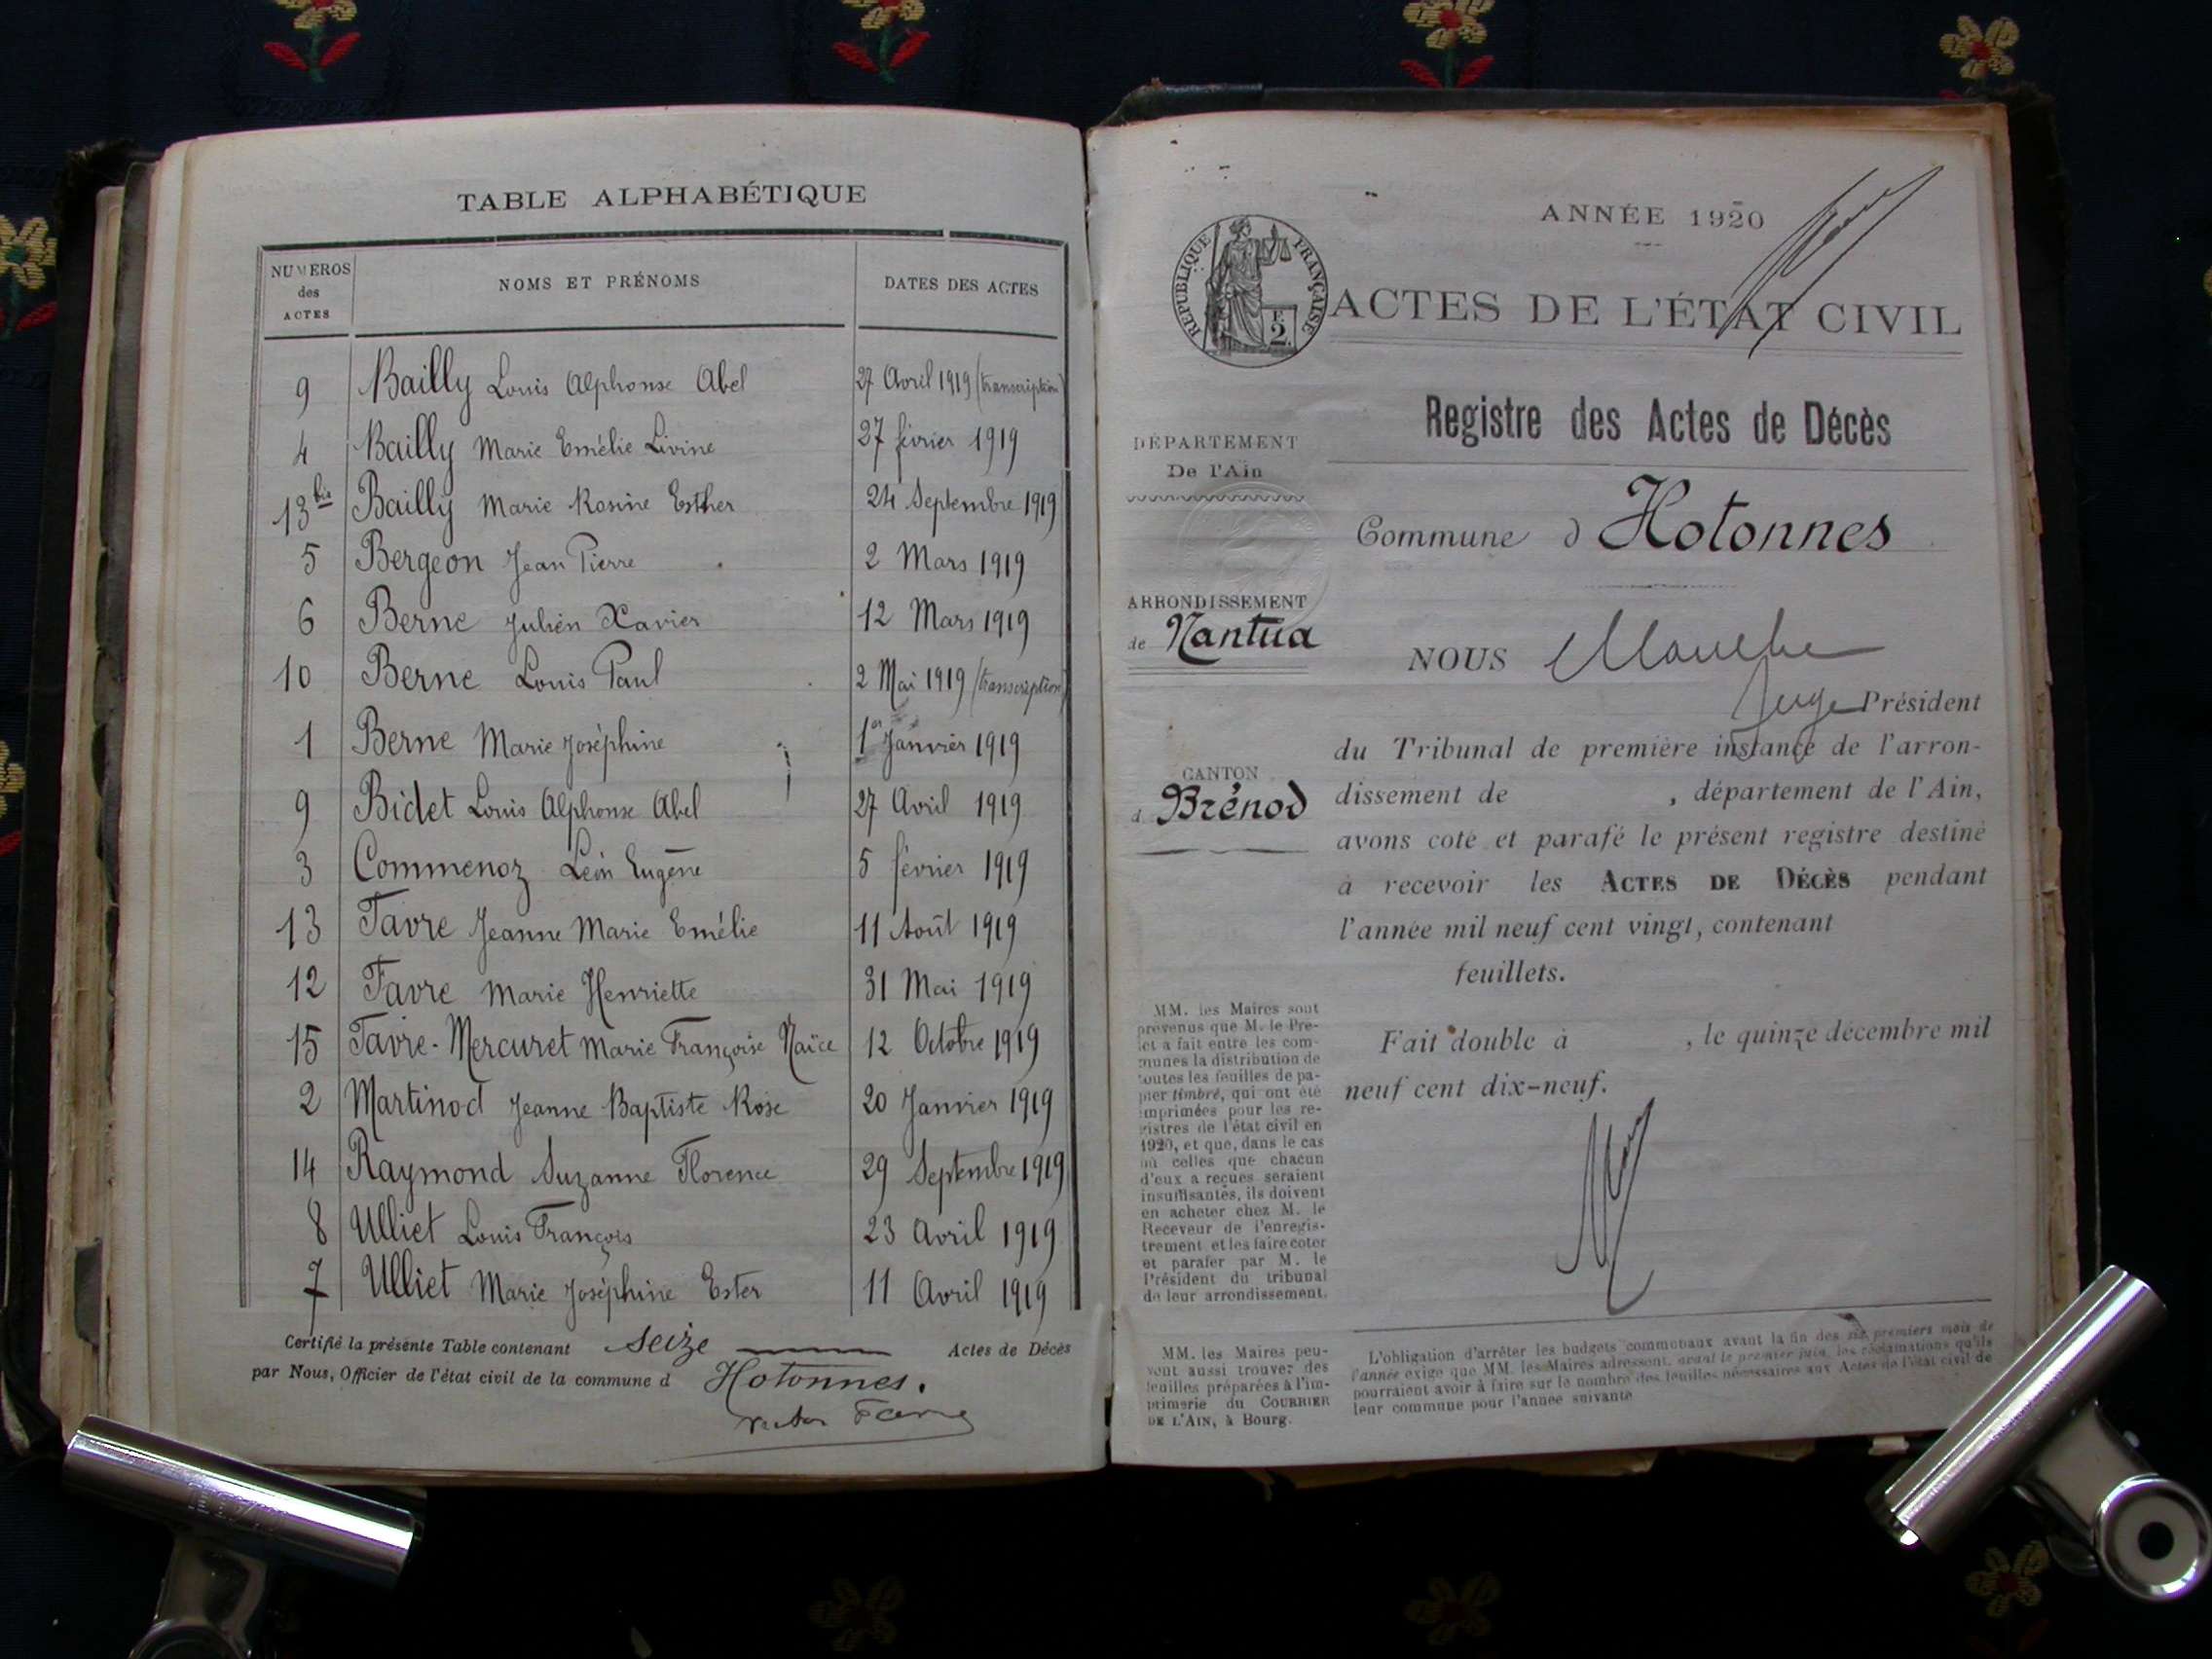 TABLE ALPHABÉTIQUE
NUMEROS des ACTES NOMS ET PRÉNOMS DATES DES ACTES
9 Bailly Louis Alphonse Abel 27 Avril 1919 (transcription)
4 Bailly Marie Emélie Livine 27 février 1919
13 bis Bailly Marie Rosine Esther 24 Septembre 1919
5 Bergeon Jean Pierre 2 Mars 1919
6 Berne Julien Xavier 12 Mars 1919
10 Berne Louis Paul 2 Mai 1919 (transcription)
1 Berne Marie Joséphine 1er Janvier 1919
9 Bidet Louis Alphonse Abel 27 Avril 1919
3 Commenoz Léon Eugène 5 février 1919
13 Favre Jeanne Marie Emélie 11 Août 1919
12 Favre Marie Henriette 31 Mai 1919
15 Favre-Mercuret Marie Françoise Naïce 12 Octobre 1919
2 Martinod Jeanne Baptiste Rose 20 Janvier 1919
14 Raymond Suzanne Florence 29 Septembre 1919
8 Ulliet Louis François 23 Avril 1919
7 Ulliet Marie Joséphine Ester 11 Avril 1919
Certifié la présente Table contenant seize Actes de Décès
par Nous, Officier de l'état civil de la commune d Hotonnes.
Victor Favre
ANNÉE 1920
RÉPUBLIQUE FRANÇAISE
2 F
ACTES DE L'ÉTAT CIVIL
Registre des Actes de Décès
DÉPARTEMENT
De l'Ain
Commune d Hotonnes
ARRONDISSEMENT
de Nantua
CANTON
d Brénod
NOUS
Juge Président
du Tribunal de première instance de l'arron-
dissement de , département de l'Ain,
avons coté et parafé le présent registre destiné
à recevoir les ACTES DE DÉCÈS pendant
l'année mil neuf cent vingt, contenant
feuillets.
Fait double à , le quinze décembre mil
neuf cent dix-neuf.
MM. les Maires sont
prévenus que M. le Pré-
fet a fait entre les com-
munes la distribution de
toutes les feuilles de pa-
pier timbré, qui ont été
imprimées pour les re-
gistres de l'état civil en
1920, et que, dans le cas
où celles que chacun
d'eux a reçues seraient
insuffisantes, ils doivent
en acheter chez M. le
Receveur de l'enregis-
trement et les faire coter
et parafer par M. le
Président du tribunal
de leur arrondissement.
MM. les Maires peu-
vent aussi trouver des
feuilles préparées à l'im-
primerie du COURRIER
DE L'AIN, à Bourg.
L'obligation d'arrêter les budgets communaux avant la fin des six premiers mois de
l'année exige que MM. les Maires adressent, avant le premier juin, les réclamations qu'ils
pourraient avoir à faire sur le nombre des feuilles nécessaires aux Actes de l'état civil de
leur commune pour l'année suivante